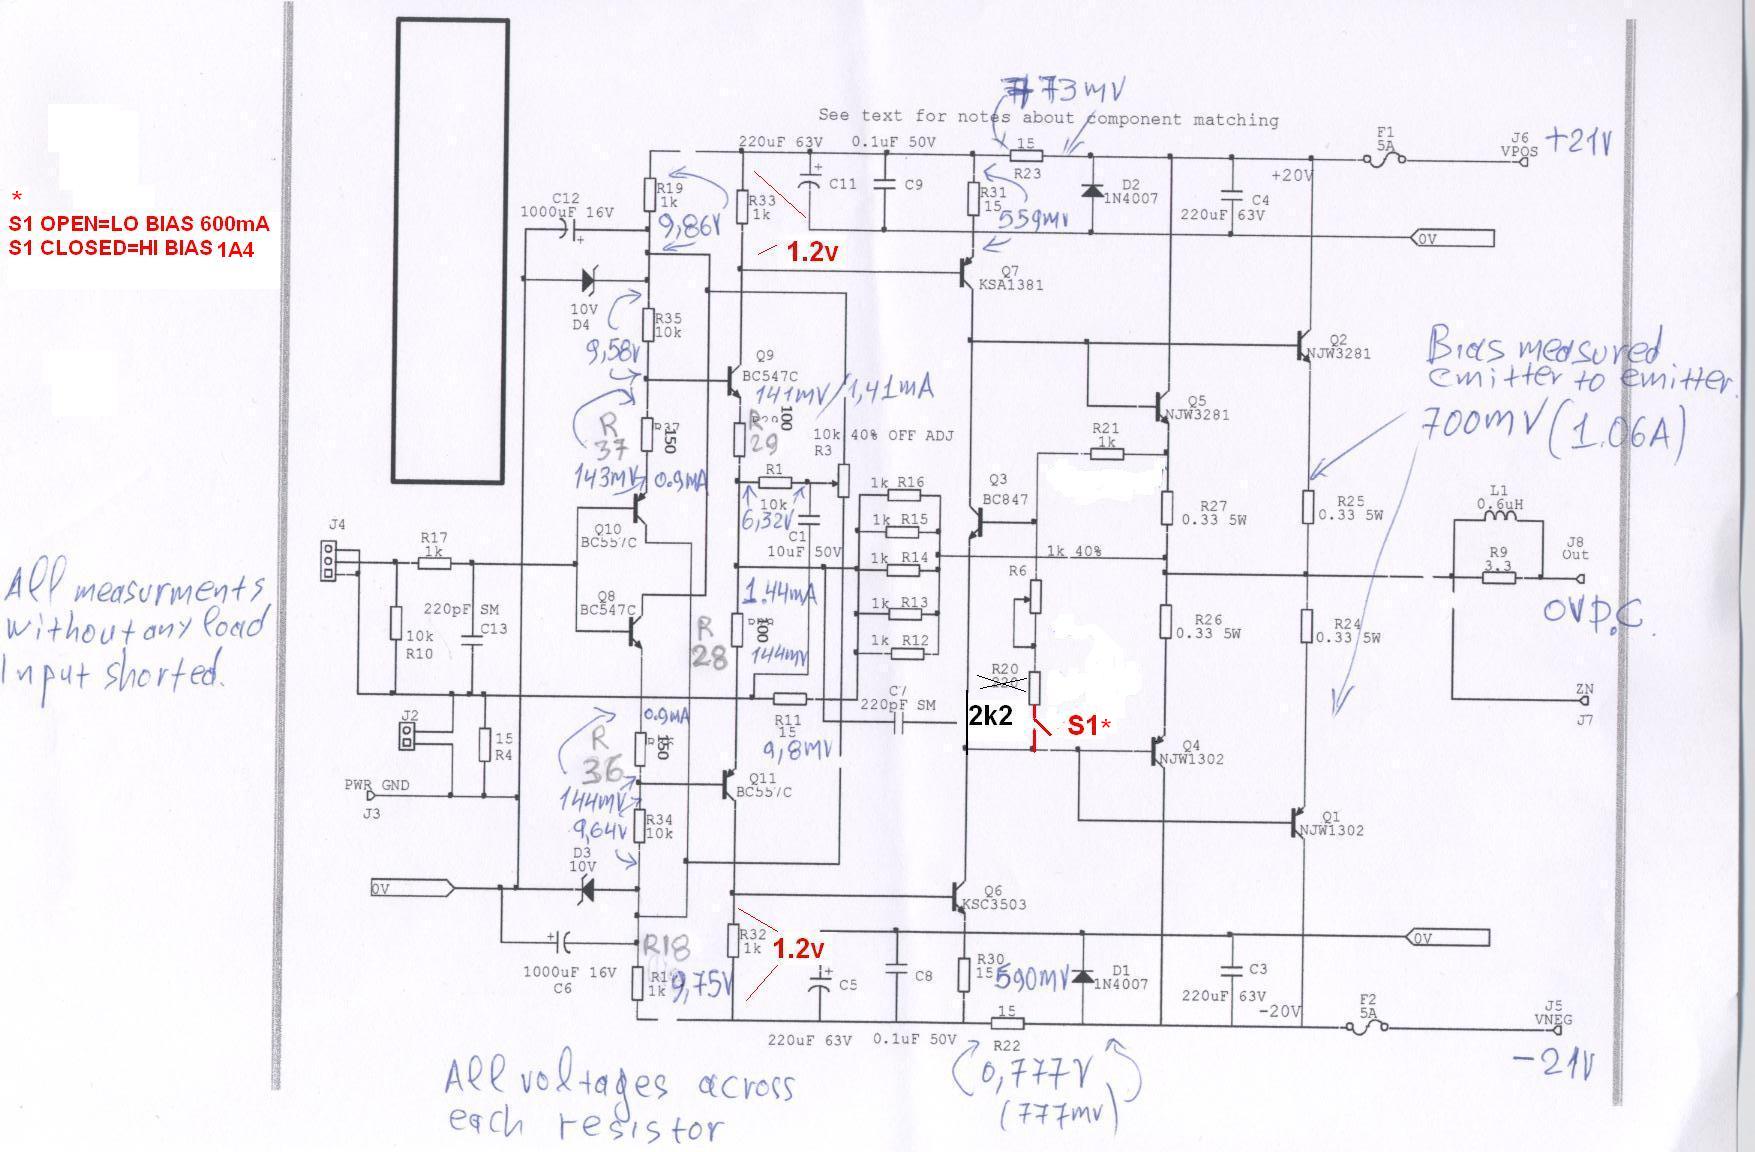 *
S1 OPEN=LO BIAS 600mA
S1 CLOSED=HI BIAS 1A4
All measurments
without any load
Input shorted.
See text for notes about component matching
773mV
220uF 63V
0.1uF 50V
15
R23
F1
5A
J6
VPOS
+21V
+20V
C12
1000uF 16V
R19
1k
9,86V
R33
1k
1.2v
C11
C9
R31
15
559mV
D2
1N4007
C4
220uF 63V
0V
Q7
KSA1381
10V
D4
R35
10k
9,58V
Q9
BC547C
141mV/1,41mA
Q2
NJW3281
Q5
NJW3281
Bias measured
emitter to emitter.
700mV (1.06A)
R37
R
37
150
143mV
0.9mA
R
29
100
10k 40% OFF ADJ
R3
R21
1k
R1
10k
6,32V
C1
10uF 50V
1k R16
1k R15
1k R14
1k R13
1k R12
Q3
BC847
R27
0.33 5W
R25
0.33 5W
L1
0.6uH
R9
3.3
J8
Out
0V D.C.
J4
R17
1k
Q10
BC557C
Q8
BC547C
1k 40%
R6
220pF SM
C13
10k
R10
1.44mA
R
28
100
144mV
R26
0.33 5W
R24
0.33 5W
R20
220
2k2
S1*
C7
220pF SM
R11
15
9,8mV
ZN
J7
J2
15
R4
0.9mA
R
36
150
144mV
PWR GND
J3
Q11
BC557C
Q4
NJW1302
9,64V
R34
10k
Q1
NJW1302
D3
10V
0V
Q6
KSC3503
R18
1k
9,75V
R32
1k
1.2v
1000uF 16V
C6
C5
C8
R30
15
590mV
D1
1N4007
C3
220uF 63V
0V
-20V
F2
5A
J5
VNEG
-21V
220uF 63V
0.1uF 50V
15
R22
0,777V
(777mV)
All voltages across
each resistor